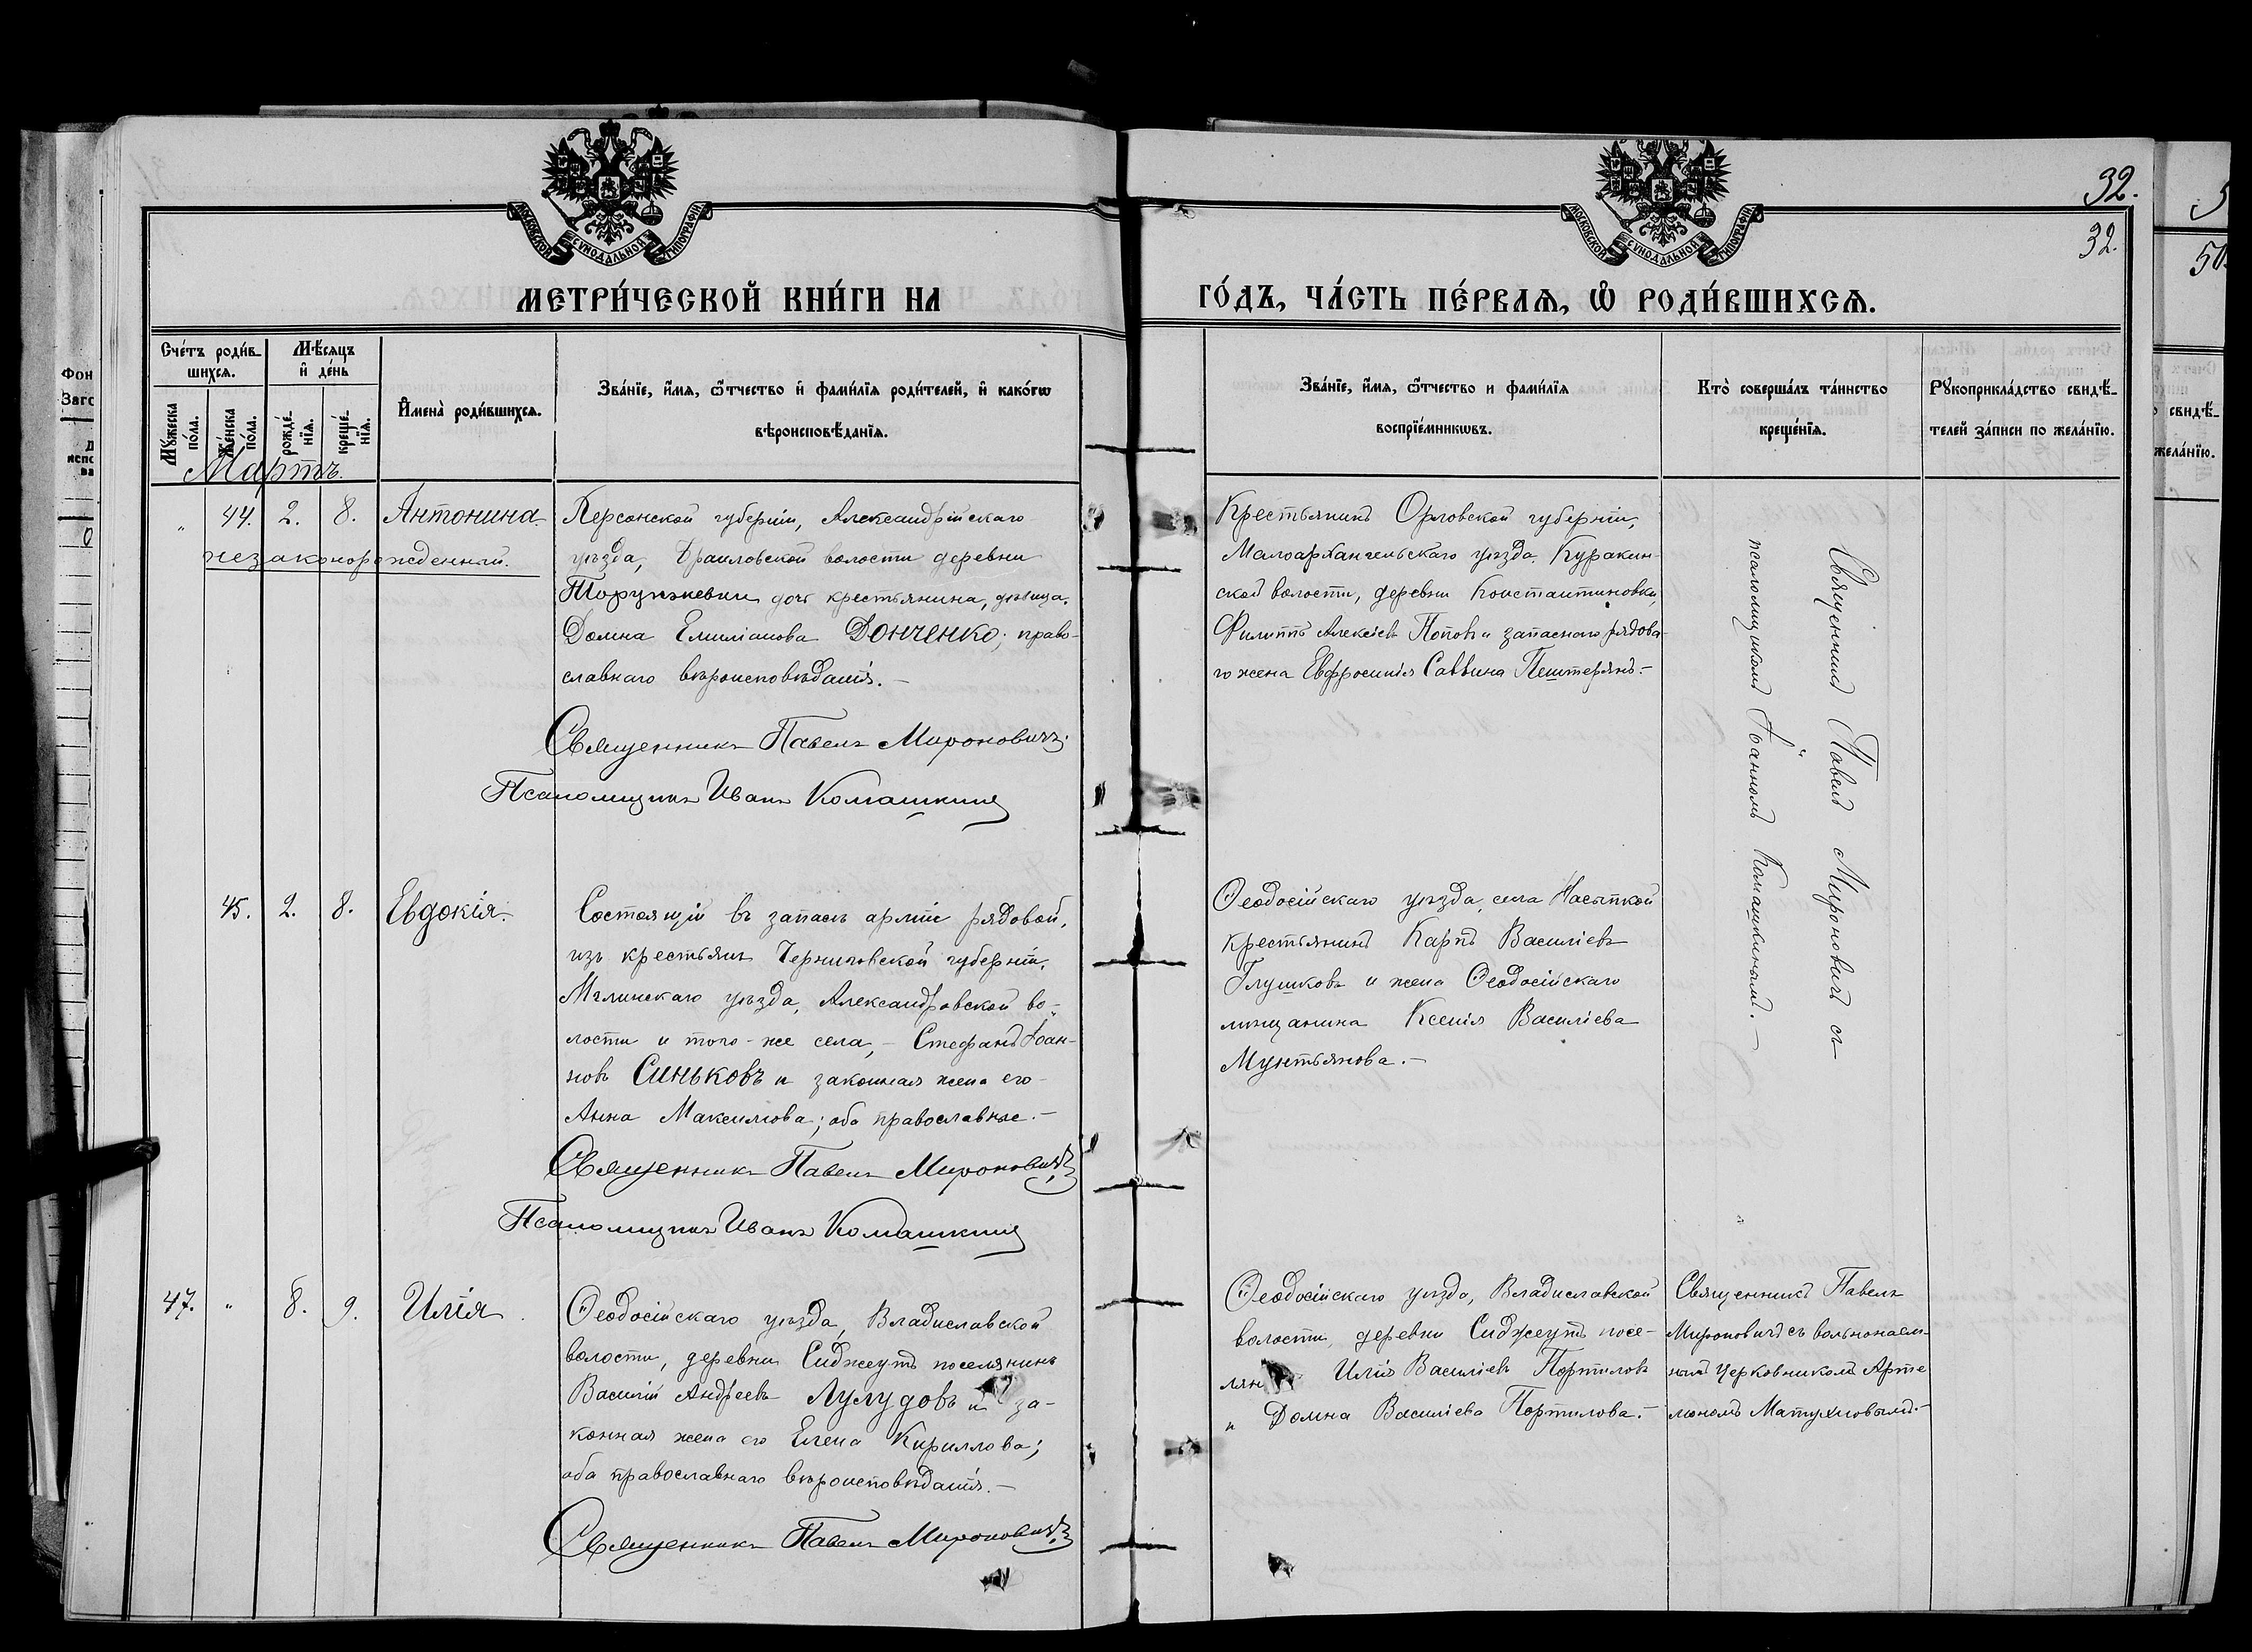 32.
32.
МОСКОВСКОЙ СУНОДАЛЬНОЙ ТИПОГРАФІИ
МОСКОВСКОЙ СУНОДАЛЬНОЙ ТИПОГРАФІИ
МЕТРИ́ЧЕСКОЙ КНИ́ГИ НА
ГО́ДЪ, ЧА́СТЬ ПЕ́РВАѦ, Ѡ РОДИ́ВШИХСѦ.
Сче́тъ роди́в-
шихсѧ.
Мѣ́сѧцъ
и҆ де́нь
Мꙋ́жеска
по́ла.
Же́нска
по́ла.
рожде́-
нїѧ.
креще́-
нїѧ.
И҆мена̀ роди́вшихсѧ.
Зва́нїе, и҆́мѧ, ѻ҆́тчество и҆ фами́лїѧ роди́телей, и҆ како́гѡ
вѣроисповѣ́данїѧ.
Зва́нїе, и҆́мѧ, ѻ҆́тчество и фами́лїѧ
воспрїе́мникѡвъ.
Кто̀ соверша́лъ та́инство
креще́нїѧ.
Рꙋкоприкла́дство свидѣ́-
телей за́писи по жела́нїю.
Мартъ.
" 44. 2. 8. Антонина
незаконорожденный.
Херсонской губерніи, Александрійскаго
уѣзда, волости деревни
дочь крестьянина, дѣвица,
Домна Емиліанова Донченко; право-
славнаго вѣроисповѣданія.–
Священникъ Павелъ Мироновичъ
Псаломщикъ Иванъ Комашкинъ
Крестьянинъ Орловской губерніи,
Малоархангельскаго уѣзда, Куракин-
ской волости, деревни Константиновки,
Филиппъ Алексіевъ Поповъ и запаснаго рядова-
го жена Евфросинія Саввина Пештерянъ.–
Священникъ Павелъ Мироновичъ съ
псаломщикомъ Іоанномъ Комашкинымъ.–
45. 2. 8. Евдокія.
Состоящій въ запасѣ арміи рядовой,
изъ крестьянъ Черниговской губерніи,
Мглинскаго уѣзда, Александровской во-
лости и того-же села,– Стефанъ Іоан-
новъ Синьковъ и законная жена его
Анна Максимова; оба православные.–
Священникъ Павелъ Мироновичъ
Псаломщикъ Иванъ Комашкинъ
Ѳеодосійскаго уѣзда, села Насыпкой
крестьянинъ Карпъ Василіевъ
Глушковъ и жена Ѳеодосійскаго
мѣщанина Ксенія Василіева
Мунтьянова.–
47. " 8. 9. Илія
Ѳеодосійскаго уѣзда, Владиславской
волости, деревни Сиджеутъ поселянинъ
Василій Андреевъ Лулудовъ и за-
конная жена его Елена Кириллова;
оба православнаго вѣроисповѣданія.–
Священникъ Павелъ Мироновичъ
Ѳеодосійскаго уѣзда, Владиславской
волости, деревни Сиджеутъ посе-
лян Илія Василіевъ Портиловъ
и Домна Василіева Портилова.–
Священникъ Павелъ
Мироновичъ съ вольнонаем-
нымъ церковникомъ Арте-
мономъ Матухновымъ.–